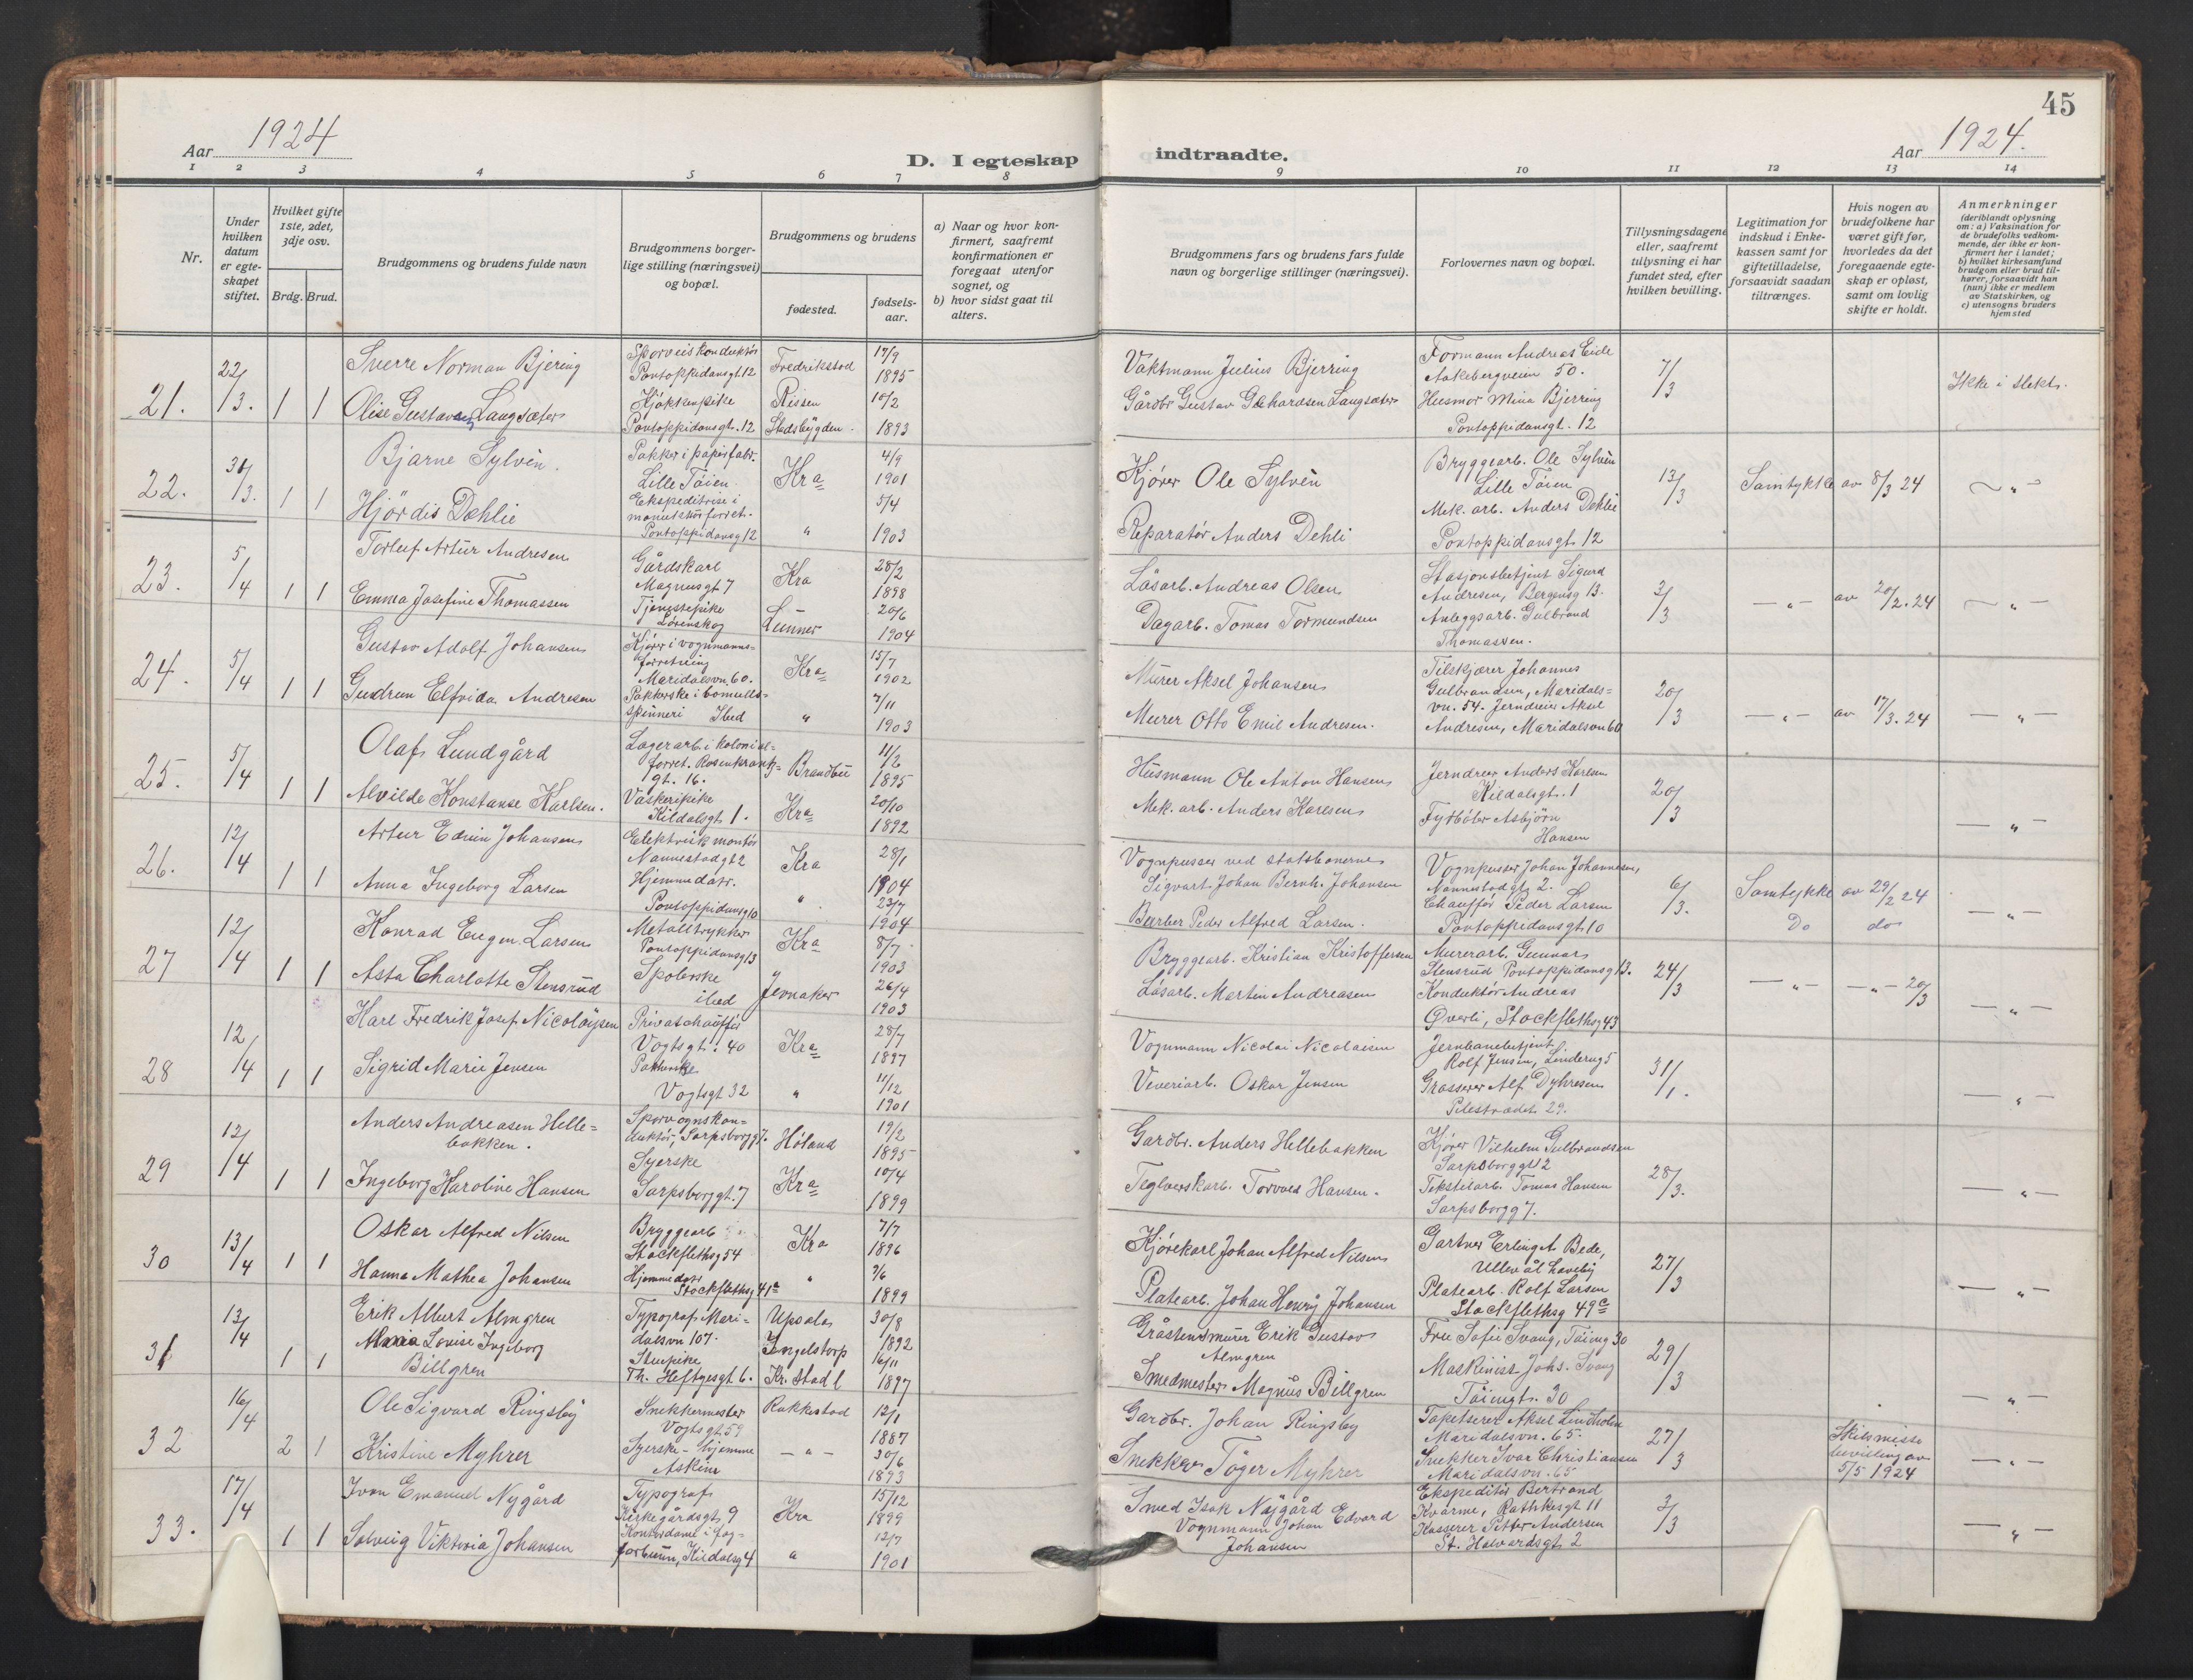 45
Aar 1924
D. I egteskap indtraadte.
Aar 1924.
1 2 3 4 5 6 7 8 9 10 11 12 13 14
Nr.
Under hvilken datum er egte-skapet stiftet.
Hvilket gifte 1ste, 2det, 3dje osv.
Brdg. Brud.
Brudgommens og brudens fulde navn
Brudgommens borger-lige stilling (næringsvei) og bopæl.
Brudgommens og brudens
fødested.
fødsels-aar.
a) Naar og hvor kon-firmert, saafremt konfirmationen er foregaat utenfor sognet, og
b) hvor sidst gaat til alters.
Brudgommens fars og brudens fars fulde navn og borgerlige stillinger (næringsvei).
Forlovernes navn og bopæl.
Tillysningsdagene eller, saafremt tillysning ei har fundet sted, efter hvilken bevilling.
Legitimation for indskud i Enke-kassen samt for giftetilladelse, forsaavidt saadan tiltrænges.
Hvis nogen av brudefolkene har været gift før, hvorledes da det foregaaende egte-skap er opløst, samt om lovlig skifte er holdt.
Anmerkninger
(deriblandt oplysning om: a) Vaksination for de brudefolks vedkom-mende, der ikke er kon-firmert her i landet; b) hvilket kirkesamfund brudgom eller brud til-hører, forsaavidt han (hun) ikke er medlem av Statskirken, og c) utensogns bruders hjemsted
21. 22/3. 1 1
Sverre Norman Bjering
Sporveiskonduktør Pontoppidansgt. 12
Fredrikstad 17/9 1895
Vaktmann Julius Bjerring
Formann Andreas Eide Aakebergveien 50.
7/3
Ikke i slekt.
Olise Gustavsen Langsæter
Kjøkkenpike Pontoppidansgt. 12
Rissen Stadsbygden. 10/2 1893
Gårdbr Gustav Gerhardsen Langsæter
Husmor Mina Bjerring Pontoppidansgt. 12
22. 30/3. 1 1
Bjarne Sylvén.
Pakker i papirfabr. Lille Tøien
Kra 4/9 1901
Kjører Ole Sylvén
Bryggearb. Ole Sylvén Lille Tøien
13/3
Samtykke av 8/3 24
— " —
Hjördis Dehlie
Ekspeditrise i manufakturforret. Pontoppidansg 12
" 5/4 1903
Reparatør Anders Dehli
Mek. arb. Anders Dehlie Pontoppidansgt. 12
23. 5/4 1 1
Torleif Artur Andresen
Gårdskarl Magnusgt 7
Kra 28/2 1898
Låsarb. Andreas Olsen
Stasjonsbetjent Sigurd Andresen, Bergensg 13.
3/3
— " — av 20/2. 24
— " —
Emma Josefine Thomassen
Tjenestepike Lørenskog
Lunner 20/6 1904
Dagarb. Tomas Tormundsen
Anleggsarb. Gulbrand Thomassen.
24. 5/4 1 1
Gustav Adolf Johansen
Kjører i vognmanns-forretning Maridalsvn. 60.
Kra 15/7 1902
Murer Aksel Johansen
Tilskjærer Johannes Gulbrandsen, Maridals-vn. 54.
20/3
— " — av 17/3. 24
— " —
Gudrun Elfrida Andresen
Pakkerske i bomulls-spinneri Ibid
" 7/11 1903
Murer Otto Emil Andresen.
Jerndreier Aksel Andresen, Maridalsvn 60
25. 5/4 1 1
Olaf Lundgård
Lagerarb. i kolonial-forret. Rosenkrantz-gt. 16.
Brandbu 11/2 1895
Husmann Ole Anton Hansen
Jerndreier Anders Karlsen Kildalsgt. 1
20/3
— " —
Alvilde Konstanse Karlsen.
Vaskeripike Kildalsgt 1.
Kra 20/10 1892
Mek. arb. Anders Karlsen
Fyrbøter Asbjørn Hansen
26. 12/4 1 1
Artur Edvin Johansen
Elektrisk montør Nannestadgt 2
Kra 28/1 1904
Vognpusser ved statsbanerne Sigvart Johan Bernh. Johansen
Vognpusser Johan Johannesen, Nannestadgt 2.
6/3.
Samtykke av 29/2 24
— " —
Anna Ingeborg Larsen
Hjemmedatr. Pontoppidansg 10
" 23/7 1904
Barber Peder Alfred Larsen.
Chauffør Peder Larsen Pontoppidansgt. 10
Do do
27 12/4 1 1
Konrad Eugen Larsen
Metalltrykker Pontoppidansg 13
Kra 8/7 1903
Bryggearb. Kristian Kristoffersen
Murerarb. Gunnar Stensrud Pontoppidansg 13.
24/3
— " — — " — 20/3
— " —
Asta Charlotte Stensrud
Spolerske ibid
Jevnaker 26/4 1903
Låsarb. Martin Andreasen
Konduktør Andreas Øverli, Stockflethsg 43
28 12/4 1 1
Karl Fredrik Josef Nicolaysen
Privatchauffør Vogtsgt. 40
Kra 28/7 1897
Vognmann Nicolai Nicolaisen
Jernbanebetjent Rolf Jensen, Linderug 5
31/1.
— " —
Sigrid Marie Jensen
Pakkerske Vogtsgt 32
" 11/12 1901
Veveriarb. Oskar Jensen
Grosserer Alf Dyhresen Pilestrædet 29.
29 12/4 1 1
Anders Andreasen Helle-bakken.
Sporvognskon-duktør, Sarpsborgg 7.
Høland 19/2 1895
Gardbr. Anders Hellebakken
Kjører Vilhelm Gulbrandsen Sarpsborggt 2
28/3.
— " —
Ingeborg Karoline Hansen
Syerske Sarpsborggt. 7
Kra 10/4 1899
Teglverskarb. Torvald Hansen.
Tekstilarb. Tomas Hansen Sarpsborgg 7.
30 13/4 1 1
Oskar Alfred Nilsen
Bryggearb Stockflethsg 54
Kra 7/7 1896
Kjørekarl Johan Alfred Nilsen
Gartner Erling A. Bede, Ullevål haveby
27/3
— " —
Hanna Mathea Johansen
Hjemmedatr Stockflethsg 41a
" 3/6 1899
Platearb. Johan Henry Johansen
Platearb. Rolf Larsen Stockflethsg 49c
31 13/4 1 1
Erik Albert Almgren
Typograf Mari-dalsvn 107.
Upsala 30/8 1892
Gråstensmurer Erik Gustav Almgren
Fru Sofie Svang, Tøieng 30
29/3
— " —
Maria Lovise Ingeborg Billgren
Stuepike Th. Heftyesgt. 6.
Ingelstorp Kr. stad l 16/11 1897
Smedmester Magnus Billgren
Maskinist Johs. Svang Tøiengt. 30
32 16/4 2 1
Ole Sigvard Ringsby
Snekkermester Vogtsgt. 59
Rakkestad 12/1 1887
Gardbr. Johan Ringsby
Tapetserer Aksel Lindholm Maridalsvn. 65.
27/3
Skilsmisse bevilling av 5/5 1924
— " —
Kristine Myhrer
Syerske - hjemme Askim
— " — 30/6 1893
Snekker Tøger Myhrer
Snekker Ivar Christiansen Maridalsvn. 65
33. 17/4 1 1
Ivan Emanuel Nygård
Typograf Kirkegårdsgt. 9
Kra 15/12 1899
Smed Isak Nygård
Ekspeditør Bertrand Kvarme, Rathkesgt 11
3/3
— " —
Solveig Viktoria Johansen
Kontordame i fag-forbunn, Kildalsg 4
" 12/7 1901
Vognmann Johan Edvard Johansen
Kasserer Petter Andersen St. Halvardsgt. 2